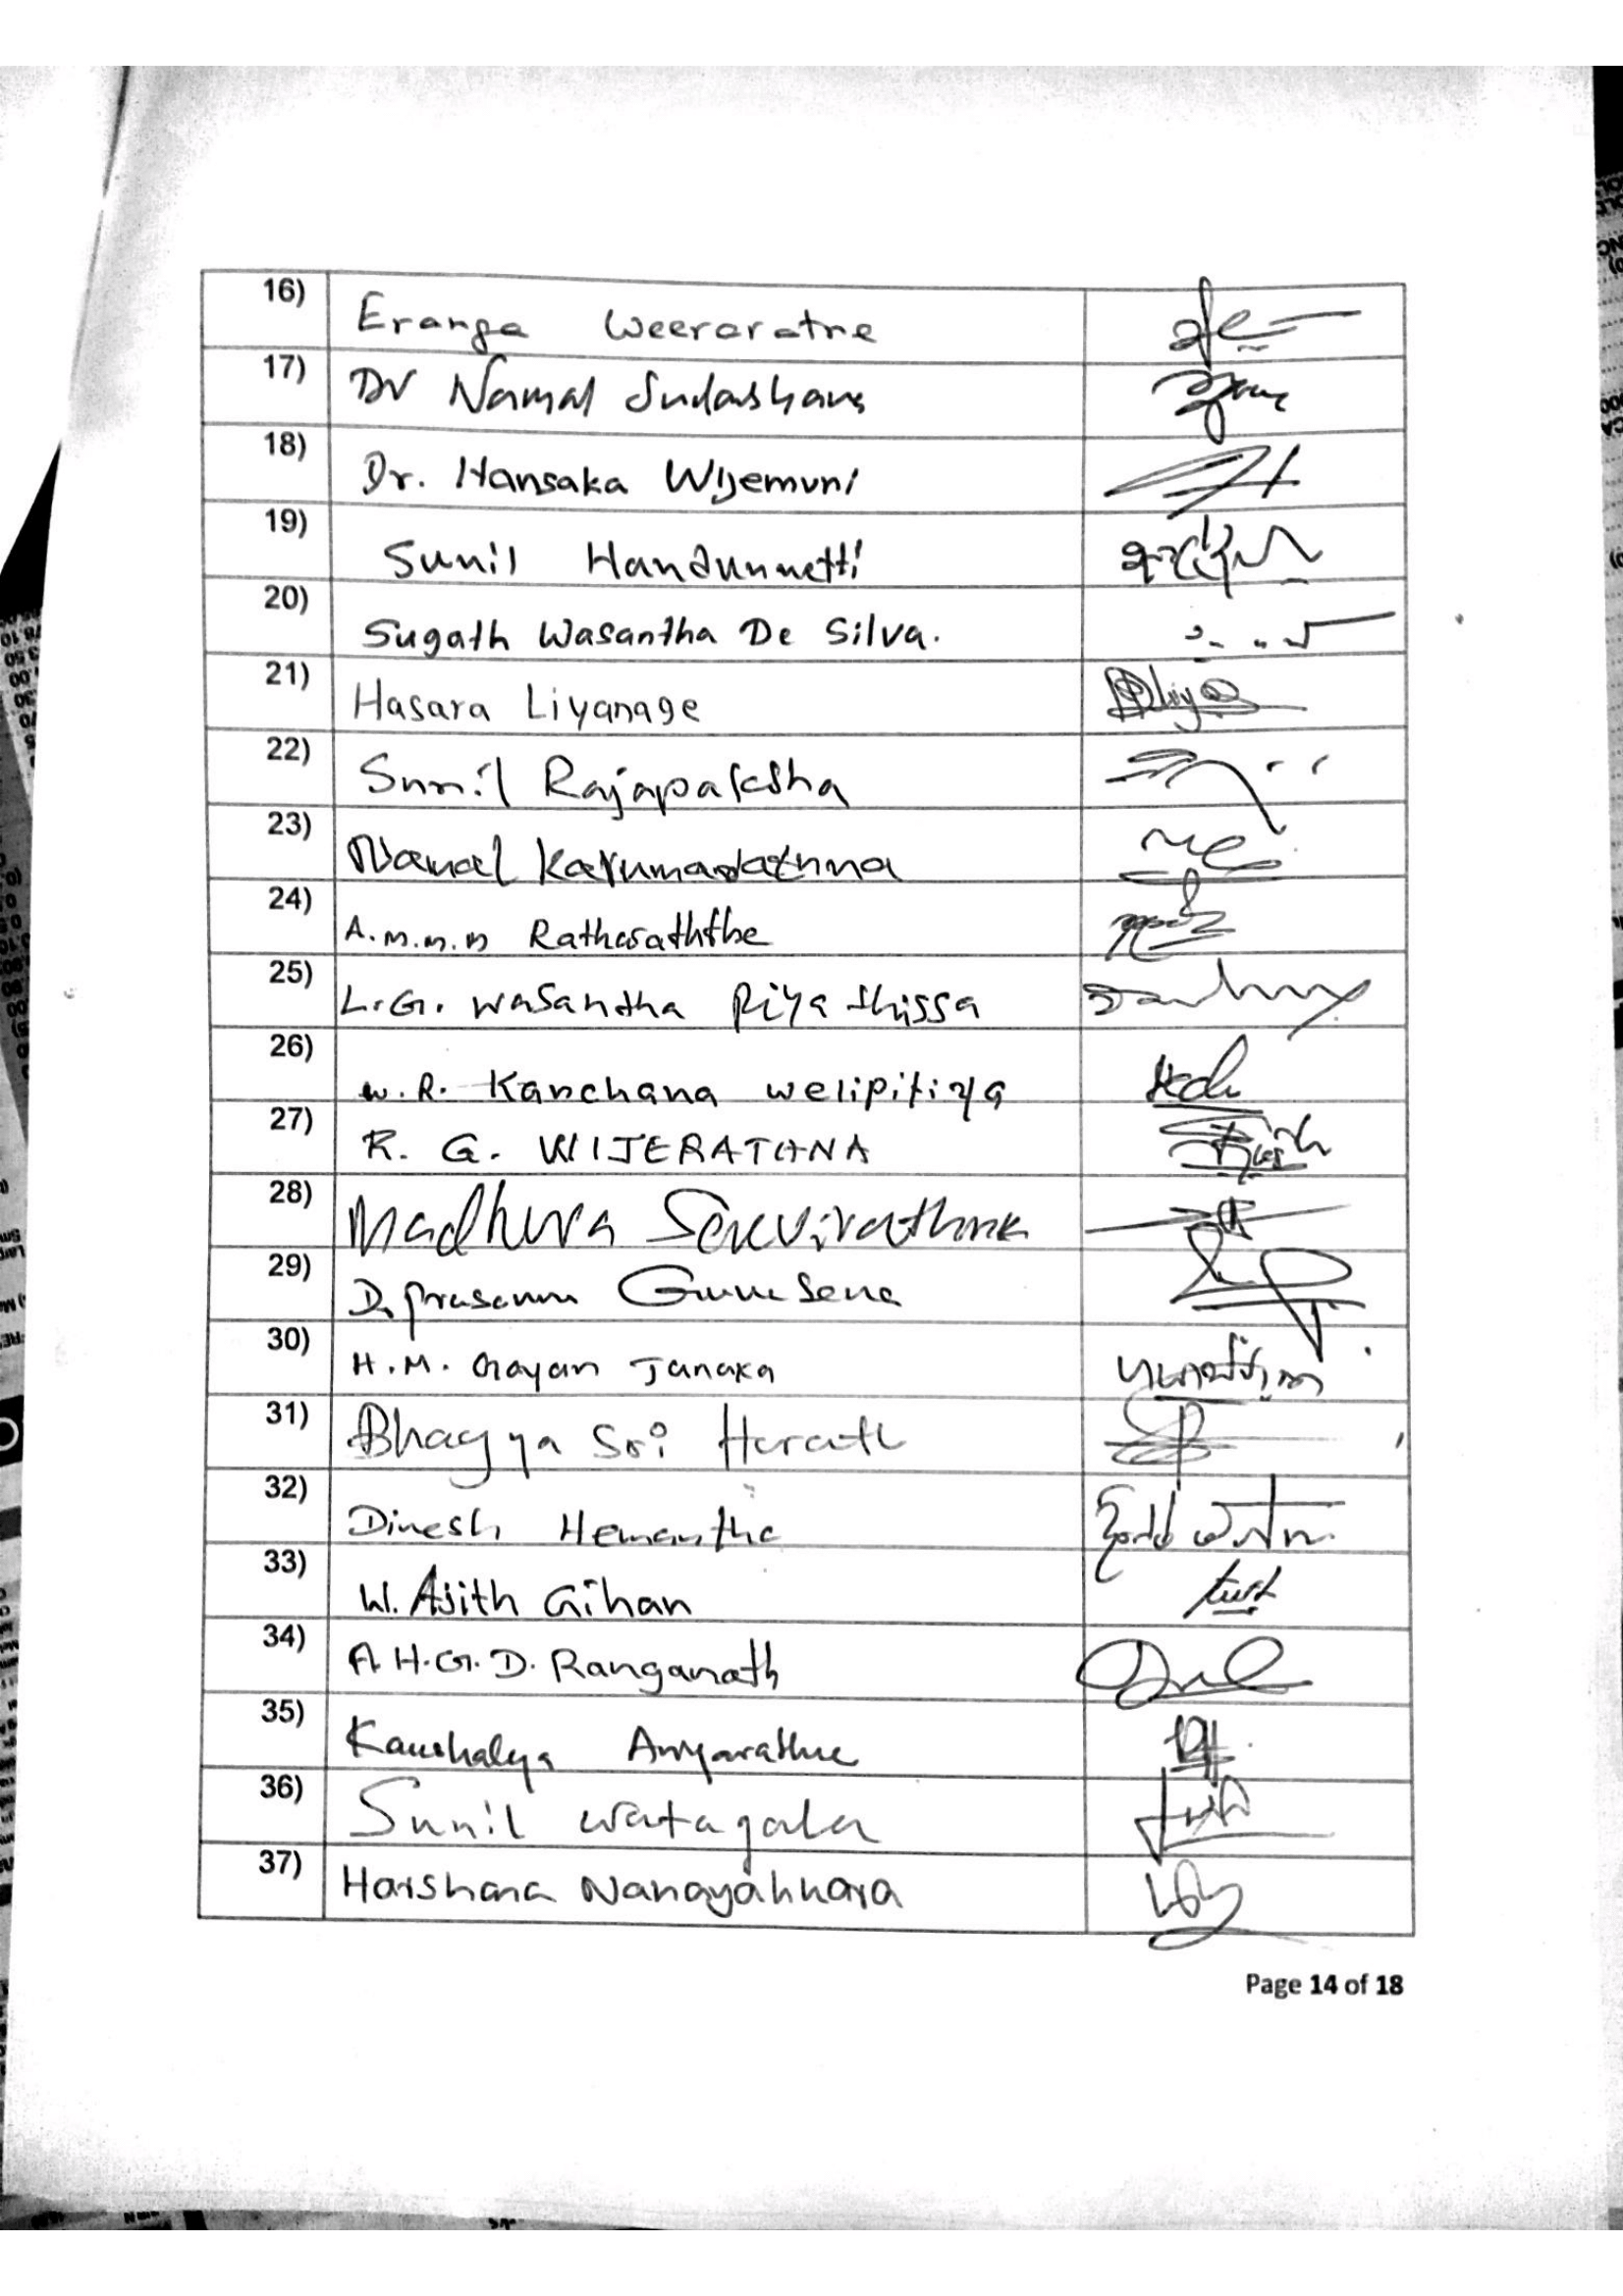 16) Eranga Weeraratne
17) Dr Namal Sudarshana
18) Dr. Hansaka Wijemuni
19) Sunil Handunnetti
20) Sugath Wasantha De Silva.
21) Hasara Liyanage
22) Sunil Rajapaksha
23) Namal Karunarathna
24) A.M.M.M Ratharaththe
25) L.G. Wasantha Piyathissa
26) W.R. Kanchana Welipitiya
27) R. G. WIJERATHNA
28) Madhura Senevirathna
29) D. Prasanna Gunasena
30) H.M. Gayan Janaka
31) Bhagya Sri Herath
32) Dinesh Hemantha
33) W. Ajith Gihan
34) A.H.G.D. Ranganath
35) Kaushalya Ariyarathne
36) Sunil Watagala
37) Harshana Nanayakkara
Page 14 of 18